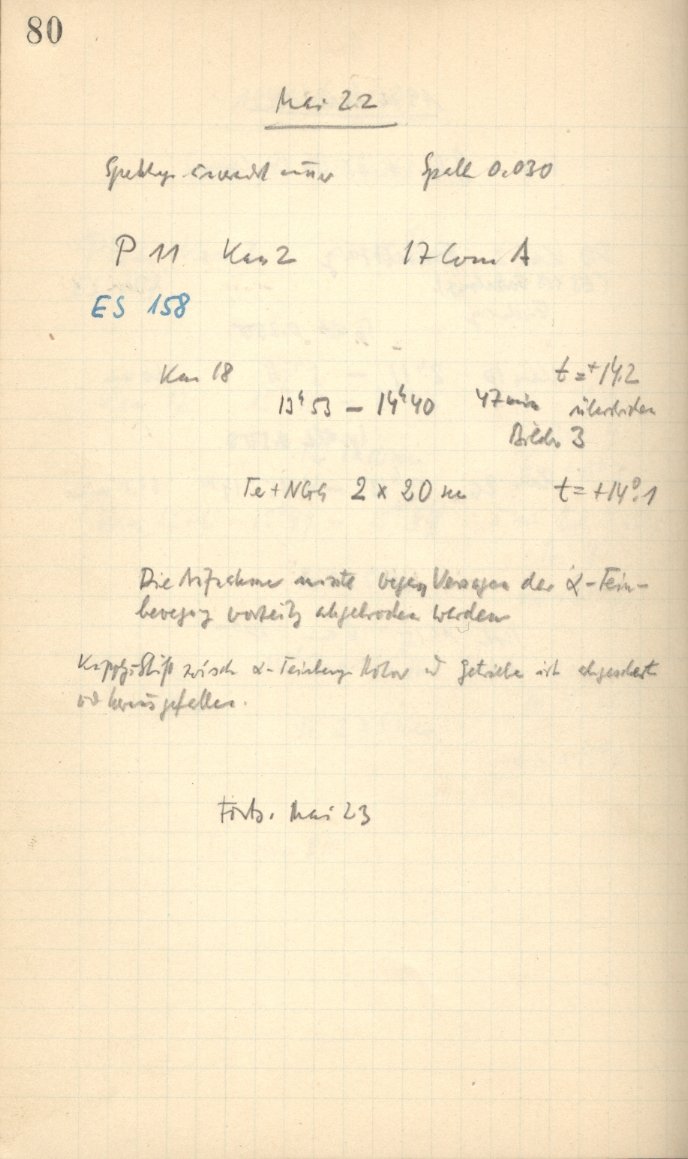 80
Mai 22
Spalt 0.030
P 11 Kass 2 17 Com A
ES 158
Kass 18 t=+14.2
13ʰ53 – 14ʰ40 47 min
Bilder 3
Fe+NGG 2 x 20 m t=+14°.1
Die Aufnahme musste wegen Versagen der α-Fein-
bewegg vorzeitig abgebrochen werden
Kupplgs-Stift zwisch α-Feinbewg Motor u Getriebe ist abgeschert
und herausgefallen.
Forts. Mai 23